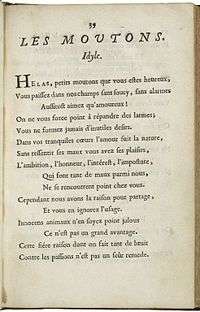 39
LES MOUTONS.
Idyle.
HELAS, petits moutons que vous estes heureux,
Vous paissez dans nos champs sans soucy, sans alarmes
Aussitost aimez qu'amoureux !
On ne vous force point à répandre des larmes;
Vous ne formez jamais d'inutiles desirs.
Dans vos tranquiles cœurs l'amour suit la nature,
Sans ressentir ses maux vous avez ses plaisirs,
L'ambition, l'honneur, l'intérest, l'imposture,
Qui font tant de maux parmi nous,
Ne se rencontrent point chez vous.
Cependant nous avons la raison pour partage,
Et vous en ignorez l'usage.
Innocens animaux n'en soyez point jaloux
Ce n'est pas un grand avantage.
Cette fiére raison dont on fait tant de bruit
Contre les passions n'est pas un seur remede.